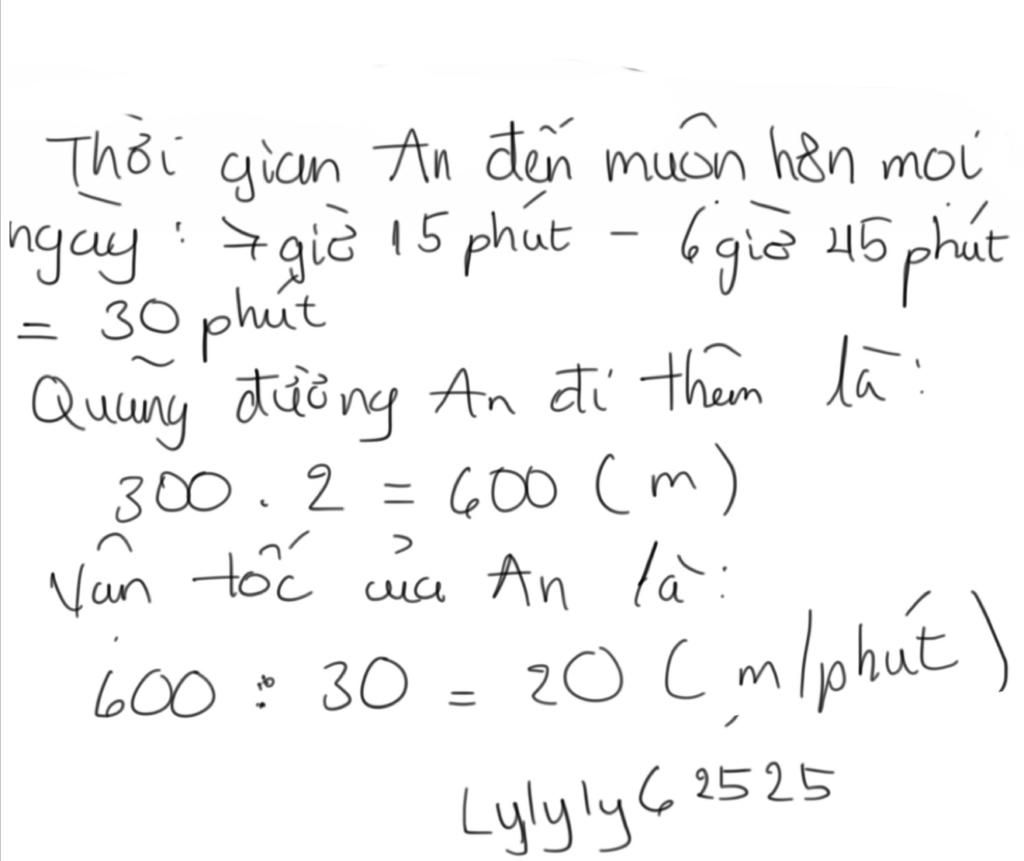 Thời gian An đến muôn hơn mọi
ngày : 7 giờ 15 phút - 6 giờ 45 phút
= 30 phút
Quãng đường An đi thêm là :
300 . 2 = 600 ( m )
Vận tốc của An là :
600 : 30 = 20 ( m/phút )
Lylyly62525